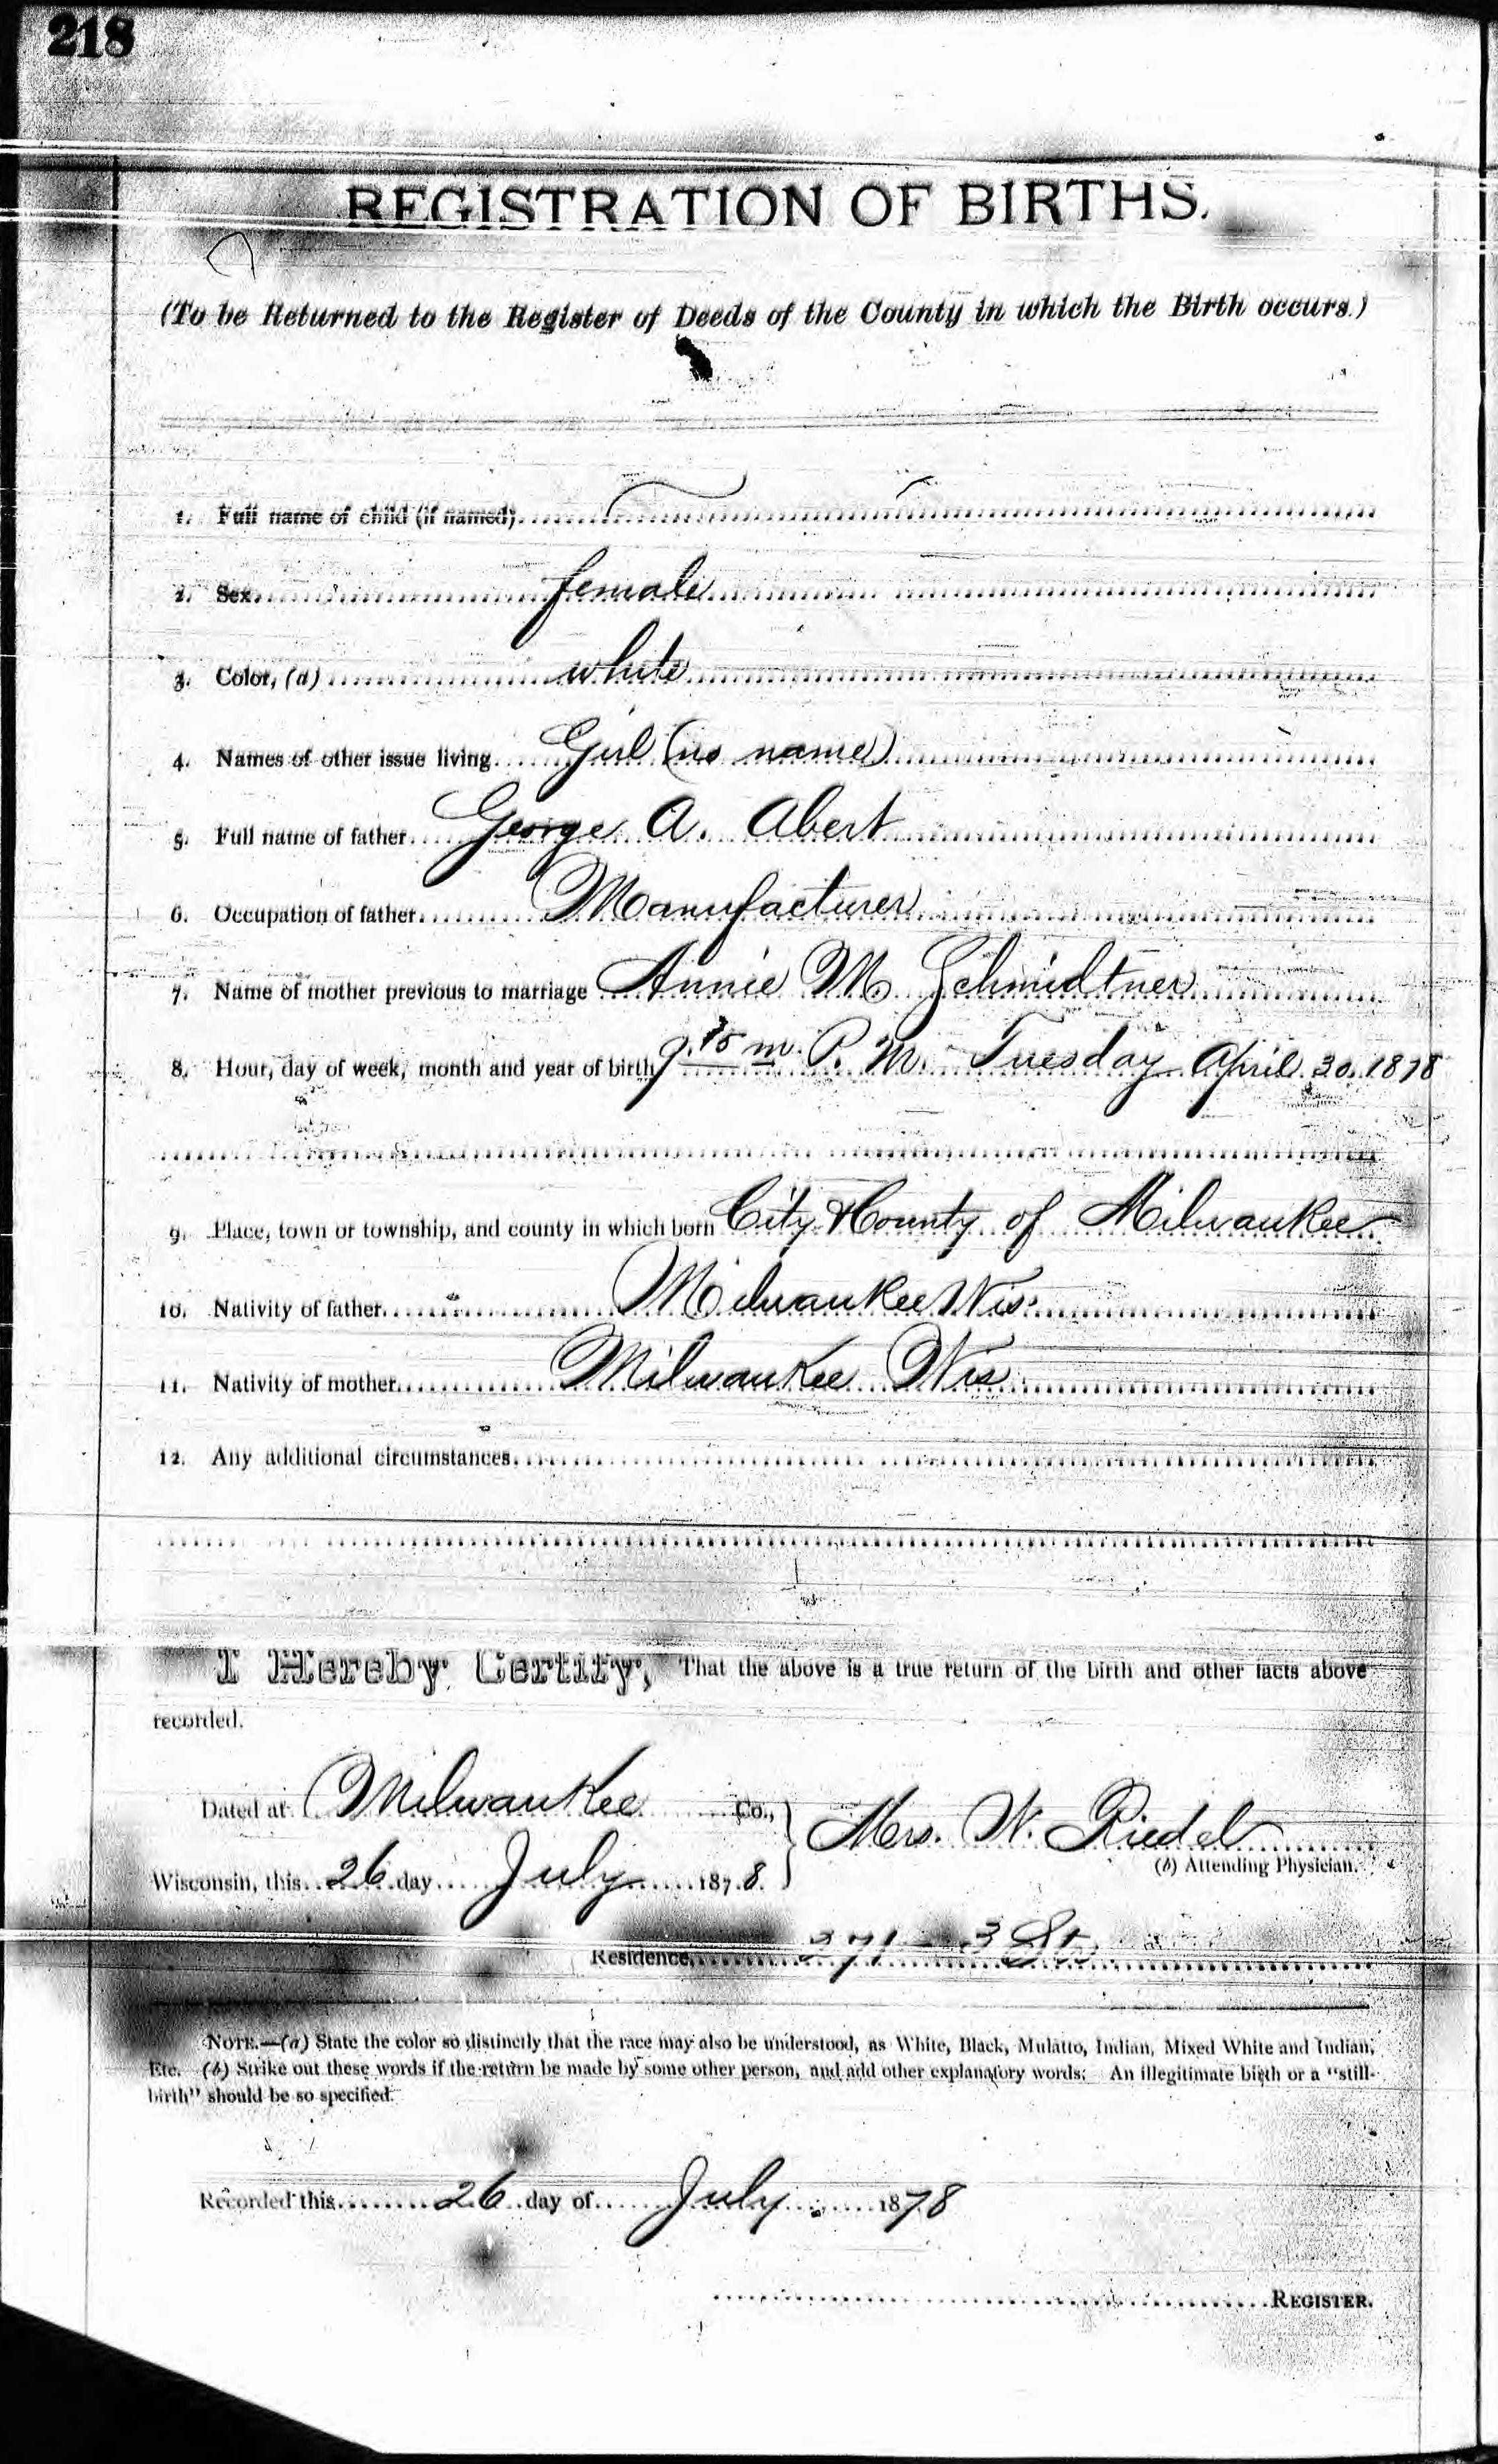 218
REGISTRATION OF BIRTHS.
(To be Returned to the Register of Deeds of the County in which the Birth occurs.)
1. Full name of child (if named)
2. Sex female
3. Color, (a) white
4. Names of other issue living Girl (no name)
5. Full name of father George A. Abert
6. Occupation of father Manufacturer
7. Name of mother previous to marriage Annie M. Schmidtner
8. Hour, day of week, month and year of birth 9.15 m. P. M. Tuesday April 30. 1878
9. Place, town or township, and county in which born City & County of Milwaukee
10. Nativity of father Milwaukee Wis.
11. Nativity of mother Milwaukee Wis
12. Any additional circumstances
I Hereby Certify, That the above is a true return of the birth and other facts above
recorded.
Dated at Milwaukee Co., Mrs. W. Riedel
(b) Attending Physician.
Wisconsin, this 26 day July 1878.
Residence 271 - 3 St.
NOTE.—(a) State the color so distinctly that the race may also be understood, as White, Black, Mulatto, Indian, Mixed White and Indian,
Etc. (b) Strike out these words if the return be made by some other person, and add other explanatory words. An illegitimate birth or a "still-
birth" should be so specified.
Recorded this 26 day of July 1878
REGISTER.